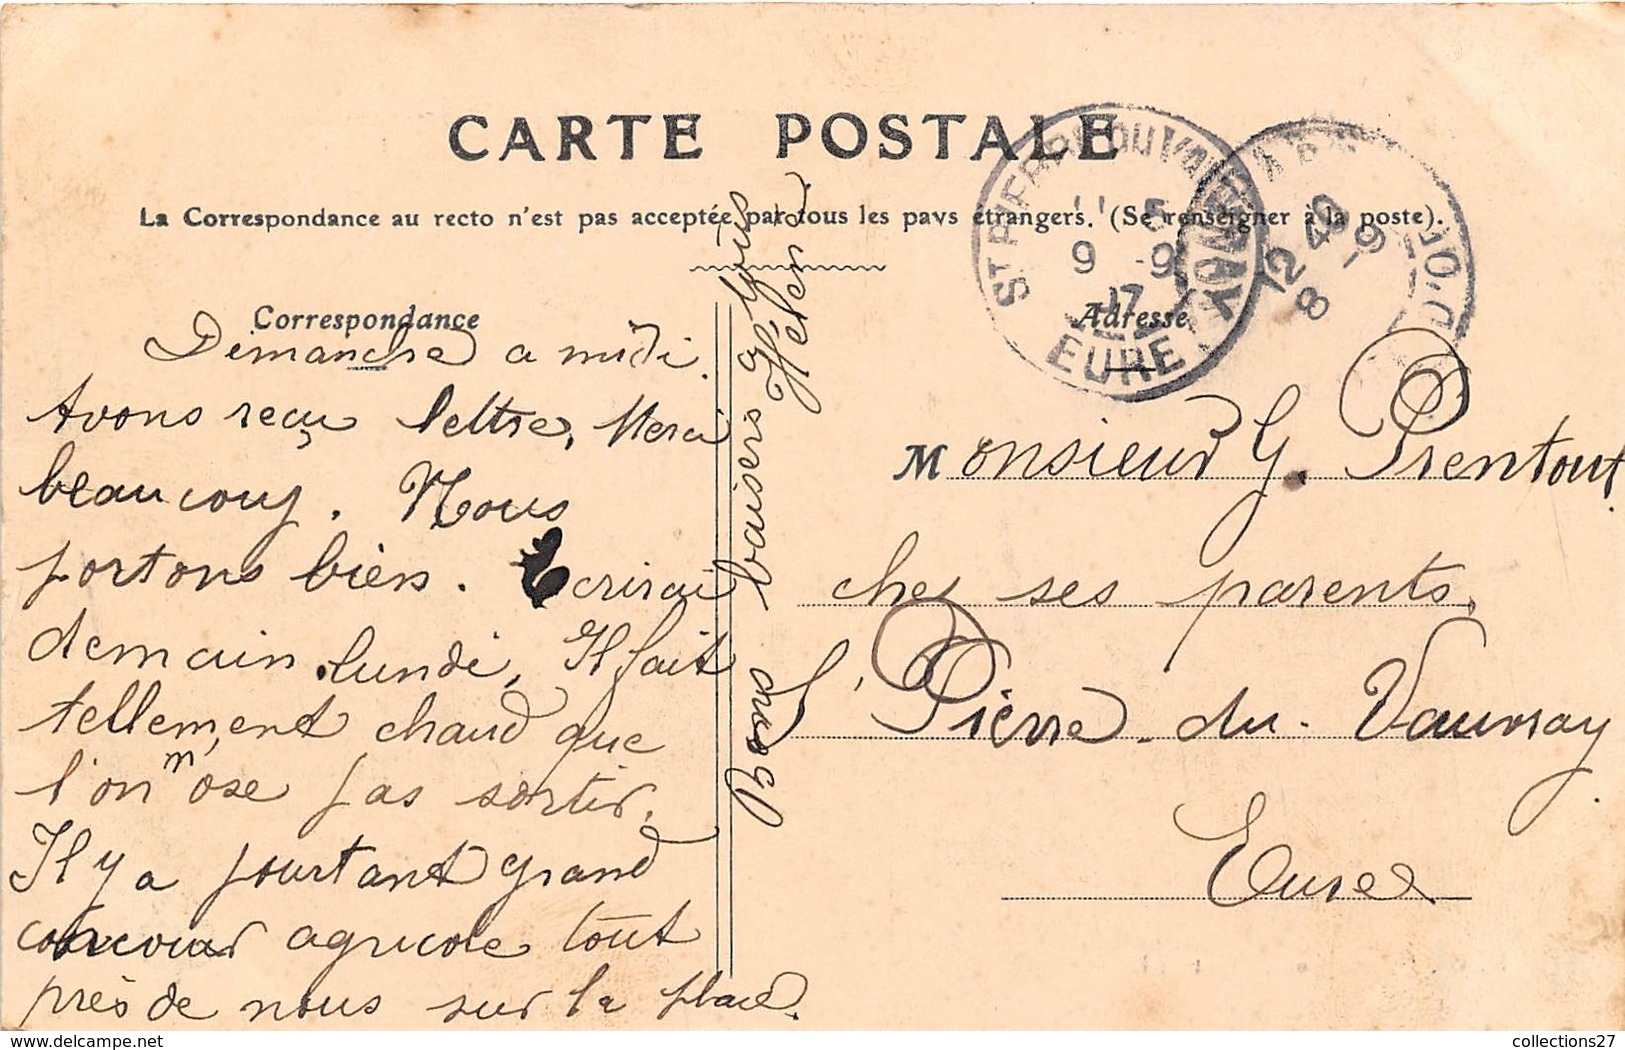 CARTE POSTALE
La Correspondance au recto n'est pas acceptée par tous les pays étrangers. (Se renseigner à la poste).
Correspondance
Dimanche a midi.
Avons reçu lettre, Merci
beaucoup. Nous
portons bien. Ecrirai
demain lundi, Il fait
tellement chaud que
l'on n'ose pas sortir.
Il y a pourtant grand
concour agricole tout
près de nous sur la place.
Bons baisers à tous
Hélène
Adresse
Monsieur G. Prentout
chez ses parents,
St Pierre-du-Vauvray
Eure
ST PIERRE DU VAUVRAY
11 5
9 -9
17
EURE
12 40
8 -9
my-delcampe.net
collections27